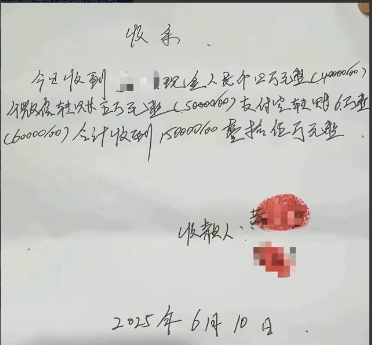 收条.
今日收到现金人民币四万元整(40000.00)
微信转账伍万元整(50000.00)支付宝转账6万整
(60000.00)合计收到150000.00壹拾伍万元整.
收款人:黄
2025年6月10日.